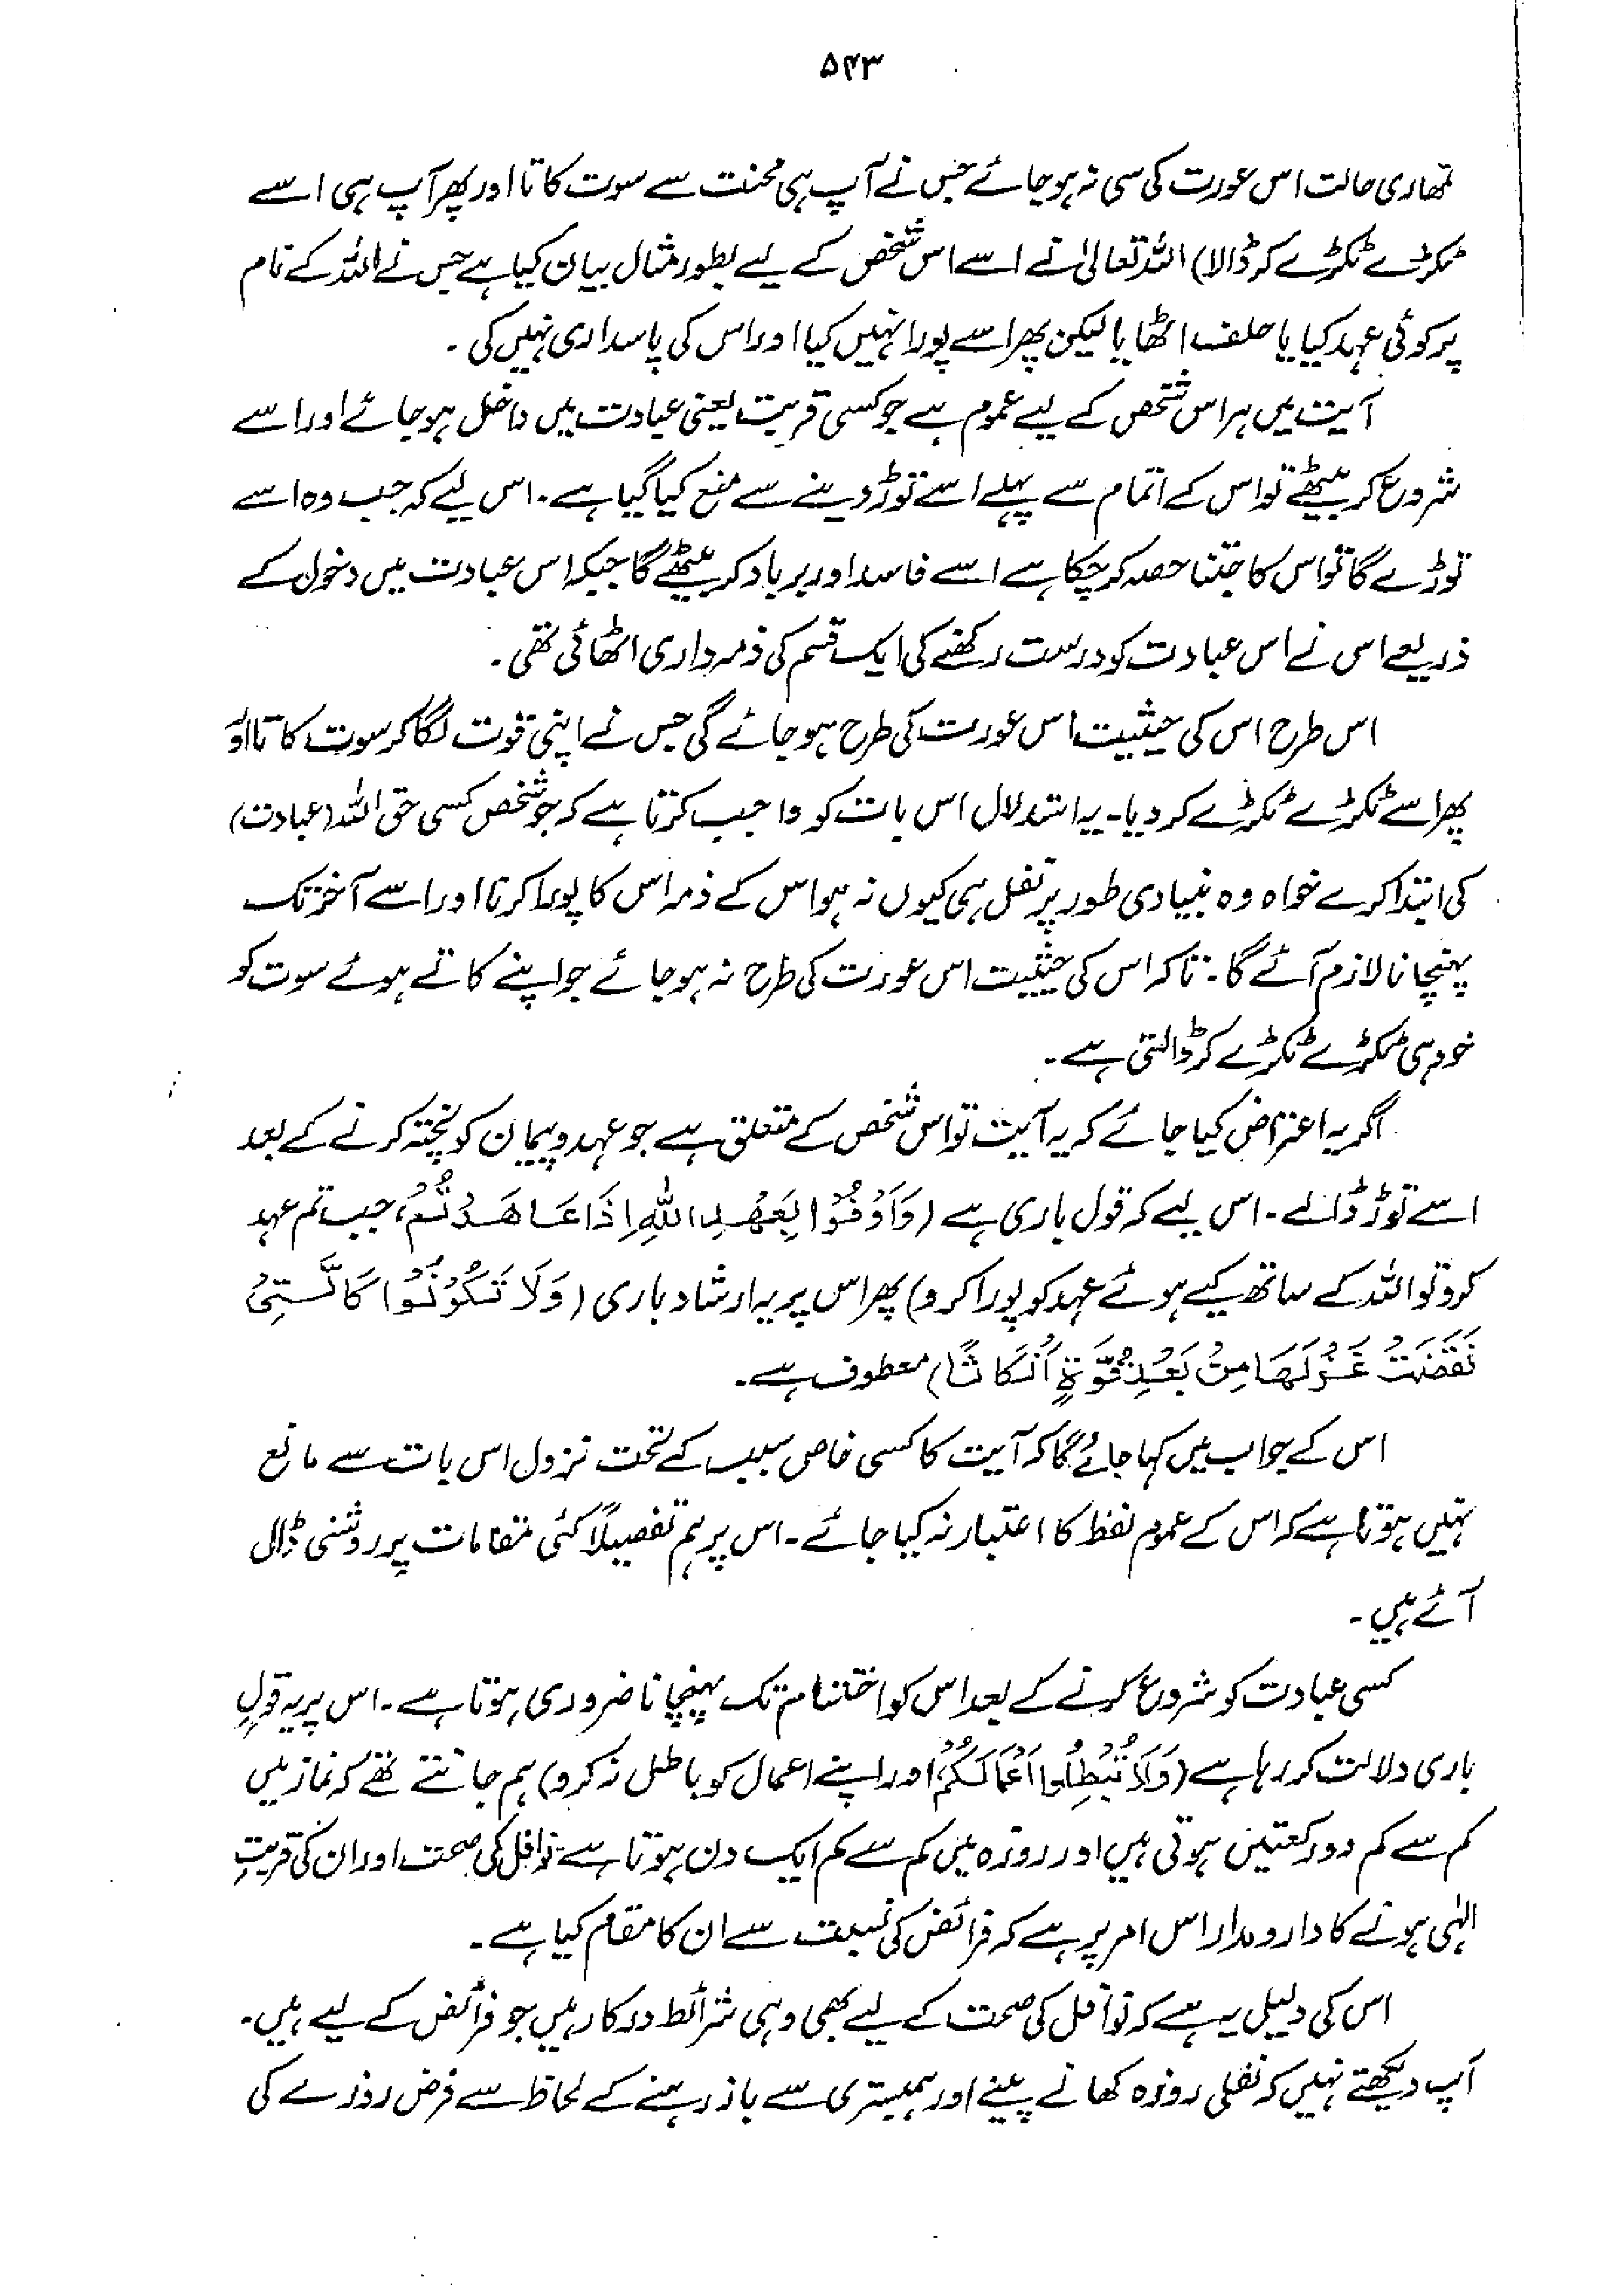 ۵۴۳
تمھاری حالت اس عورت کی سی نہ ہو جائے جس نے آپ ہی محنت سے سوت کاتا اور پھر آپ ہی اسے
ٹکڑے ٹکڑے کر ڈالا) اللہ تعالیٰ نے اسے اس شخص کے لیے بطور مثال بیان کیا ہے جس نے اللہ کے نام
پر کوئی عہد کیا یا حلف اٹھایا لیکن پھر اسے پورا نہیں کیا اور اس کی پاسداری نہیں کی۔
آیت میں ہر اس شخص کے لیے عموم ہے جو کسی قربت یعنی عبادت میں داخل ہو جائے اور اسے
شروع کر بیٹھے تو اس کے اتمام سے پہلے اسے توڑ دینے سے منع کیا گیا ہے۔ اس لیے کہ جب وہ اسے
توڑے گا تو اس کا جتنا حصہ کر چکا ہے اسے فاسد اور برباد کر بیٹھے گا جبکہ اس عبادت میں دخول کے
ذریعے اس نے اس عبادت کو درست رکھنے کی ایک قسم کی ذمہ داری اٹھائی تھی۔
اس طرح اس کی حیثیت اس عورت کی طرح ہو جائے گی جس نے اپنی قوت لگا کر سوت کاتا اور
پھر اسے ٹکڑے ٹکڑے کر دیا۔ یہ استدلال اس بات کو واجب کرتا ہے کہ جو شخص کسی حق اللہ (عبادت)
کی ابتدا کرے خواہ وہ بنیادی طور پر نفل ہی کیوں نہ ہو اس کے ذمہ اس کا پورا کرنا اور اسے آخر تک
پہنچانا لازم آئے گا۔ تاکہ اس کی حیثیت اس عورت کی طرح نہ ہو جائے جو اپنے کاتے ہوئے سوت کو
خود ہی ٹکڑے ٹکڑے کر ڈالتی ہے۔
اگر یہ اعتراض کیا جائے کہ یہ آیت تو اس شخص کے متعلق ہے جو عہد و پیمان کو پختہ کرنے کے بعد
اسے توڑ ڈالے۔ اس لیے کہ قول باری ہے (وَاَوْفُوْا بِعَهْدِ اللهِ اِذَا عَاهَدْتُّمْ، جب تم عہد
کرو تو اللہ کے ساتھ کیے ہوئے عہد کو پورا کرو) پھر اس پر یہ ارشاد باری (وَلَا تَكُوْنُوْا كَالَّتِیْ
نَقَضَتْ غَزْلَهَا مِنْ بَعْدِ قُوَّةٍ اَنْكَاثًا) معطوف ہے۔
اس کے جواب میں کہا جائے گا کہ آیت کا کسی خاص سبب کے تحت نزول اس بات سے مانع
نہیں ہوتا ہے کہ اس کے عموم لفظ کا اعتبار نہ کیا جائے۔ اس پر ہم تفصیلاً کئی مقامات پر روشنی ڈال
آئے ہیں۔
کسی عبادت کو شروع کرنے کے بعد اس کو اختتام تک پہنچانا ضروری ہوتا ہے۔ اس پر یہ قولِ
باری دلالت کر رہا ہے (وَلَا تُبْطِلُوا اَعْمَالَكُمْ اور اپنے اعمال کو باطل نہ کرو) ہم جانتے تھے کہ نماز میں
کم سے کم دو رکعتیں ہوتی ہیں اور روزہ میں کم سے کم ایک دن ہوتا ہے نوافل کی صحت اور ان کی قربتِ
الہٰی ہونے کا دارومدار اس امر پر ہے کہ فرائض کی نسبت سے ان کا مقام کیا ہے۔
اس کی دلیل یہ ہے کہ نوافل کی صحت کے لیے بھی وہی شرائط درکار ہیں جو فرائض کے لیے ہیں۔
آپ دیکھتے نہیں کہ نفلی روزہ کھانے پینے اور ہمبستری سے باز رہنے کے لحاظ سے فرض روزے کی